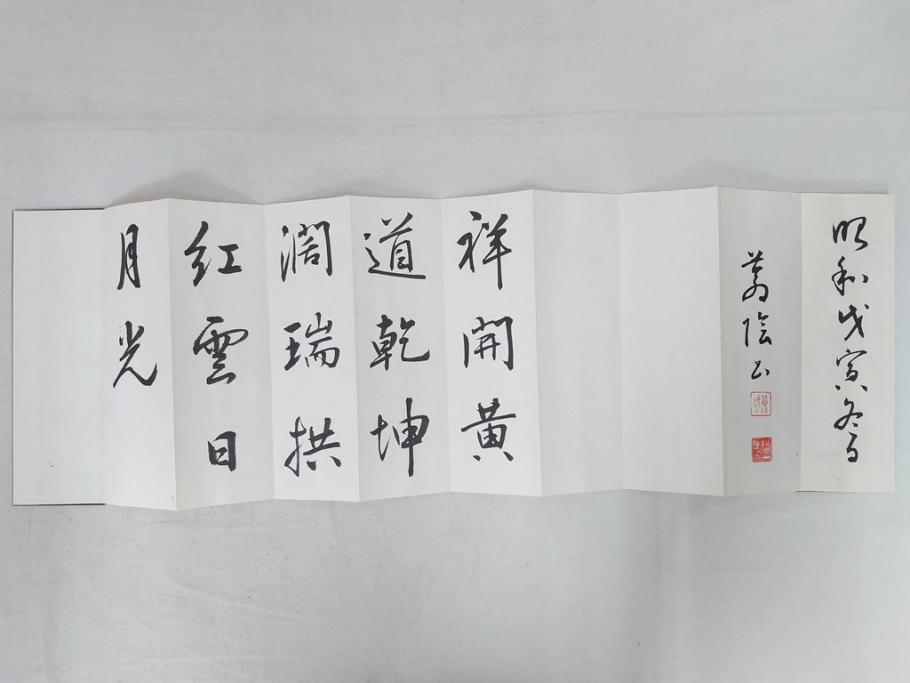 昭和戊寅冬日
蔦陰書
祥開黄
道乾坤
濶瑞拱
紅雲日
月光